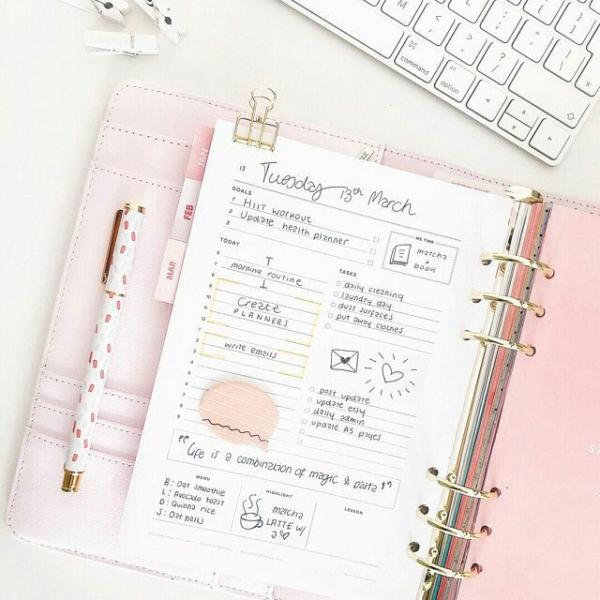 command
option
JAN
FEB
MAR
13 Tuesday 13th March
GOALS
1 HIIT WORKOUT
2 Update health planner
3
ME TIME
matcha
+
book
TODAY
morning routine
Create
PLANNERS
write emails
TASKS
daily cleaning
laundry day
dust surfaces
put away clothes
post update
update etsy
daily admin
update A5 pages
"Life is a combination of magic & pasta"
MENU
B: Oat smoothie
L: Avocado toast
D: Quinoa rice
S: Oat balls
HIGHLIGHT
matcha
LATTE W/
J
LESSON